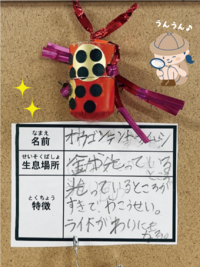 うんうん♪
なまえ
名前
オウゴンテントウムシ
せいそくばしょ
生息場所
金が光っている
ところ
とくちょう
特徴
光っているところが
すきでやこうせい。
ライトがわりにも
なる。